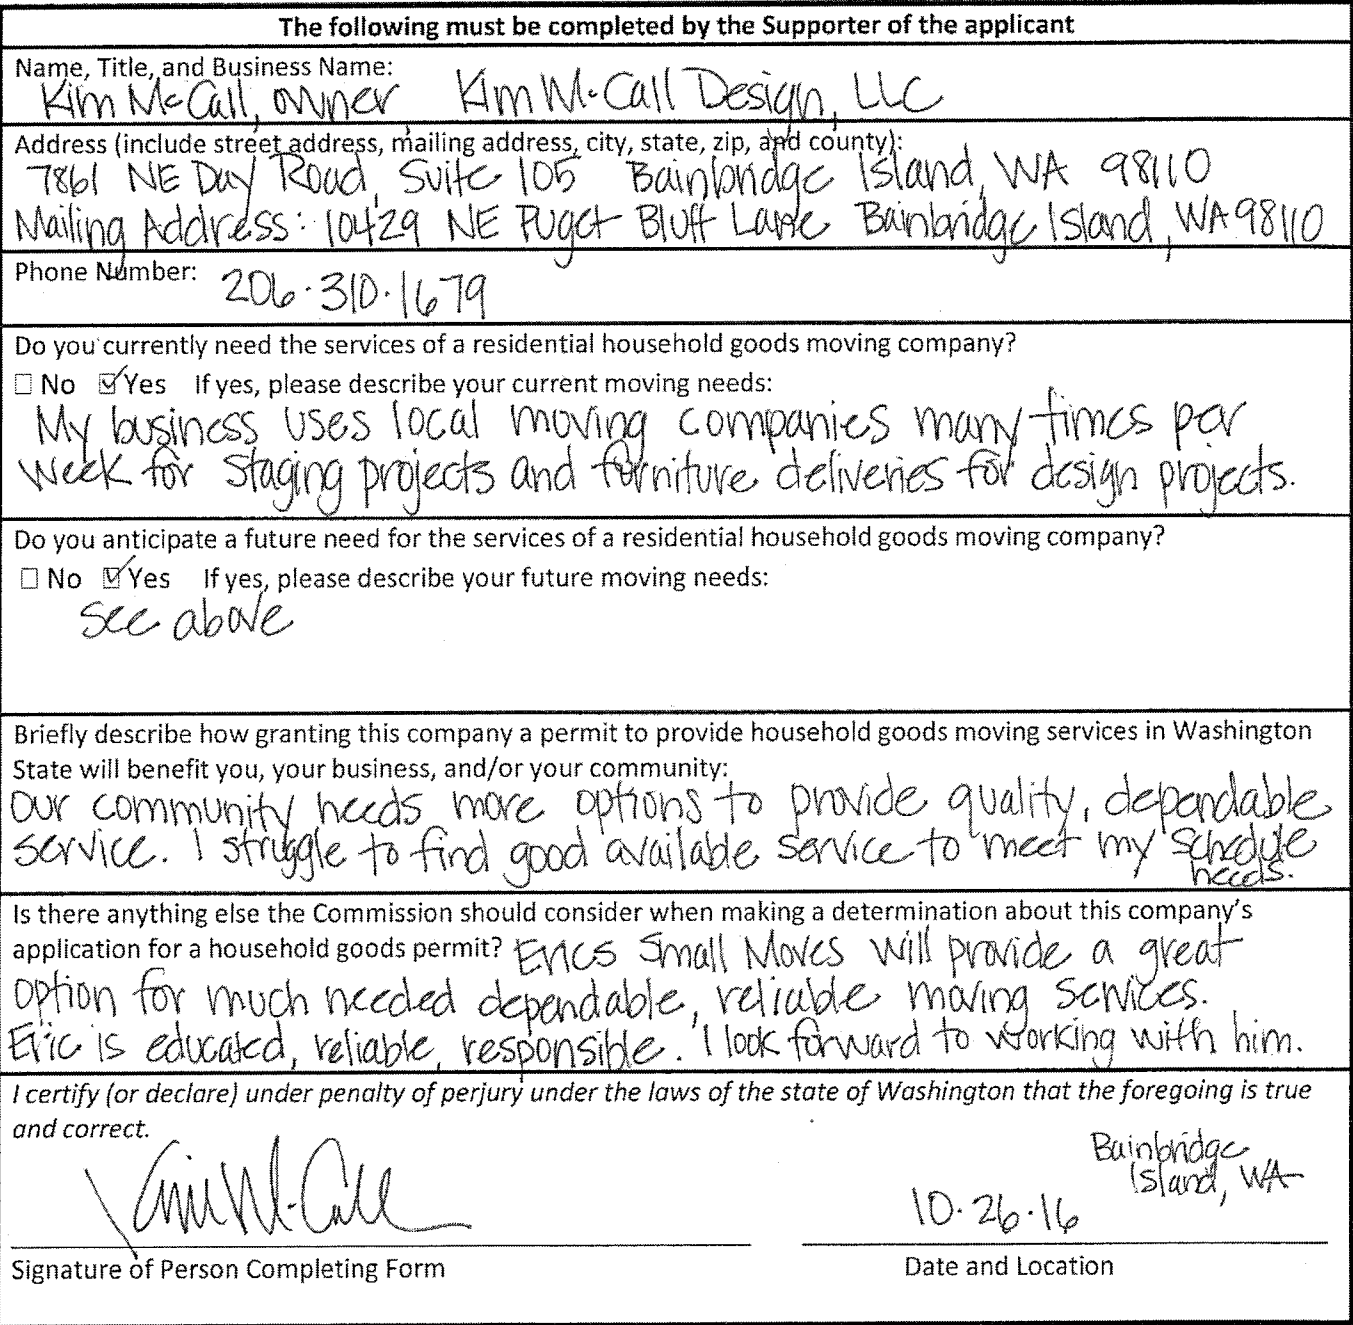 The following must be completed by the Supporter of the applicant
Name, Title, and Business Name:
Kim McCall, owner Kim McCall Design, LLC
Address (include street address, mailing address, city, state, zip, and county):
7861 NE Day Road, Suite 105 Bainbridge Island, WA 98110
Mailing Address: 10429 NE Puget Bluff Lane Bainbridge Island, WA 98110
Phone Number: 206·310·1679
Do you currently need the services of a residential household goods moving company?
☐ No ☑ Yes If yes, please describe your current moving needs:
My business uses local moving companies many times per
week for staging projects and furniture deliveries for design projects.
Do you anticipate a future need for the services of a residential household goods moving company?
☐ No ☑ Yes If yes, please describe your future moving needs:
see above
Briefly describe how granting this company a permit to provide household goods moving services in Washington
State will benefit you, your business, and/or your community:
Our community needs more options to provide quality, dependable
service. I struggle to find good available service to meet my schedule
needs.
Is there anything else the Commission should consider when making a determination about this company's
application for a household goods permit? Erics Small Moves will provide a great
option for much needed dependable, reliable moving services.
Eric is educated, reliable, responsible. I look forward to working with him.
I certify (or declare) under penalty of perjury under the laws of the state of Washington that the foregoing is true
and correct.
Kim McCall
10·26·16 Bainbridge
Island, WA
Signature of Person Completing Form Date and Location